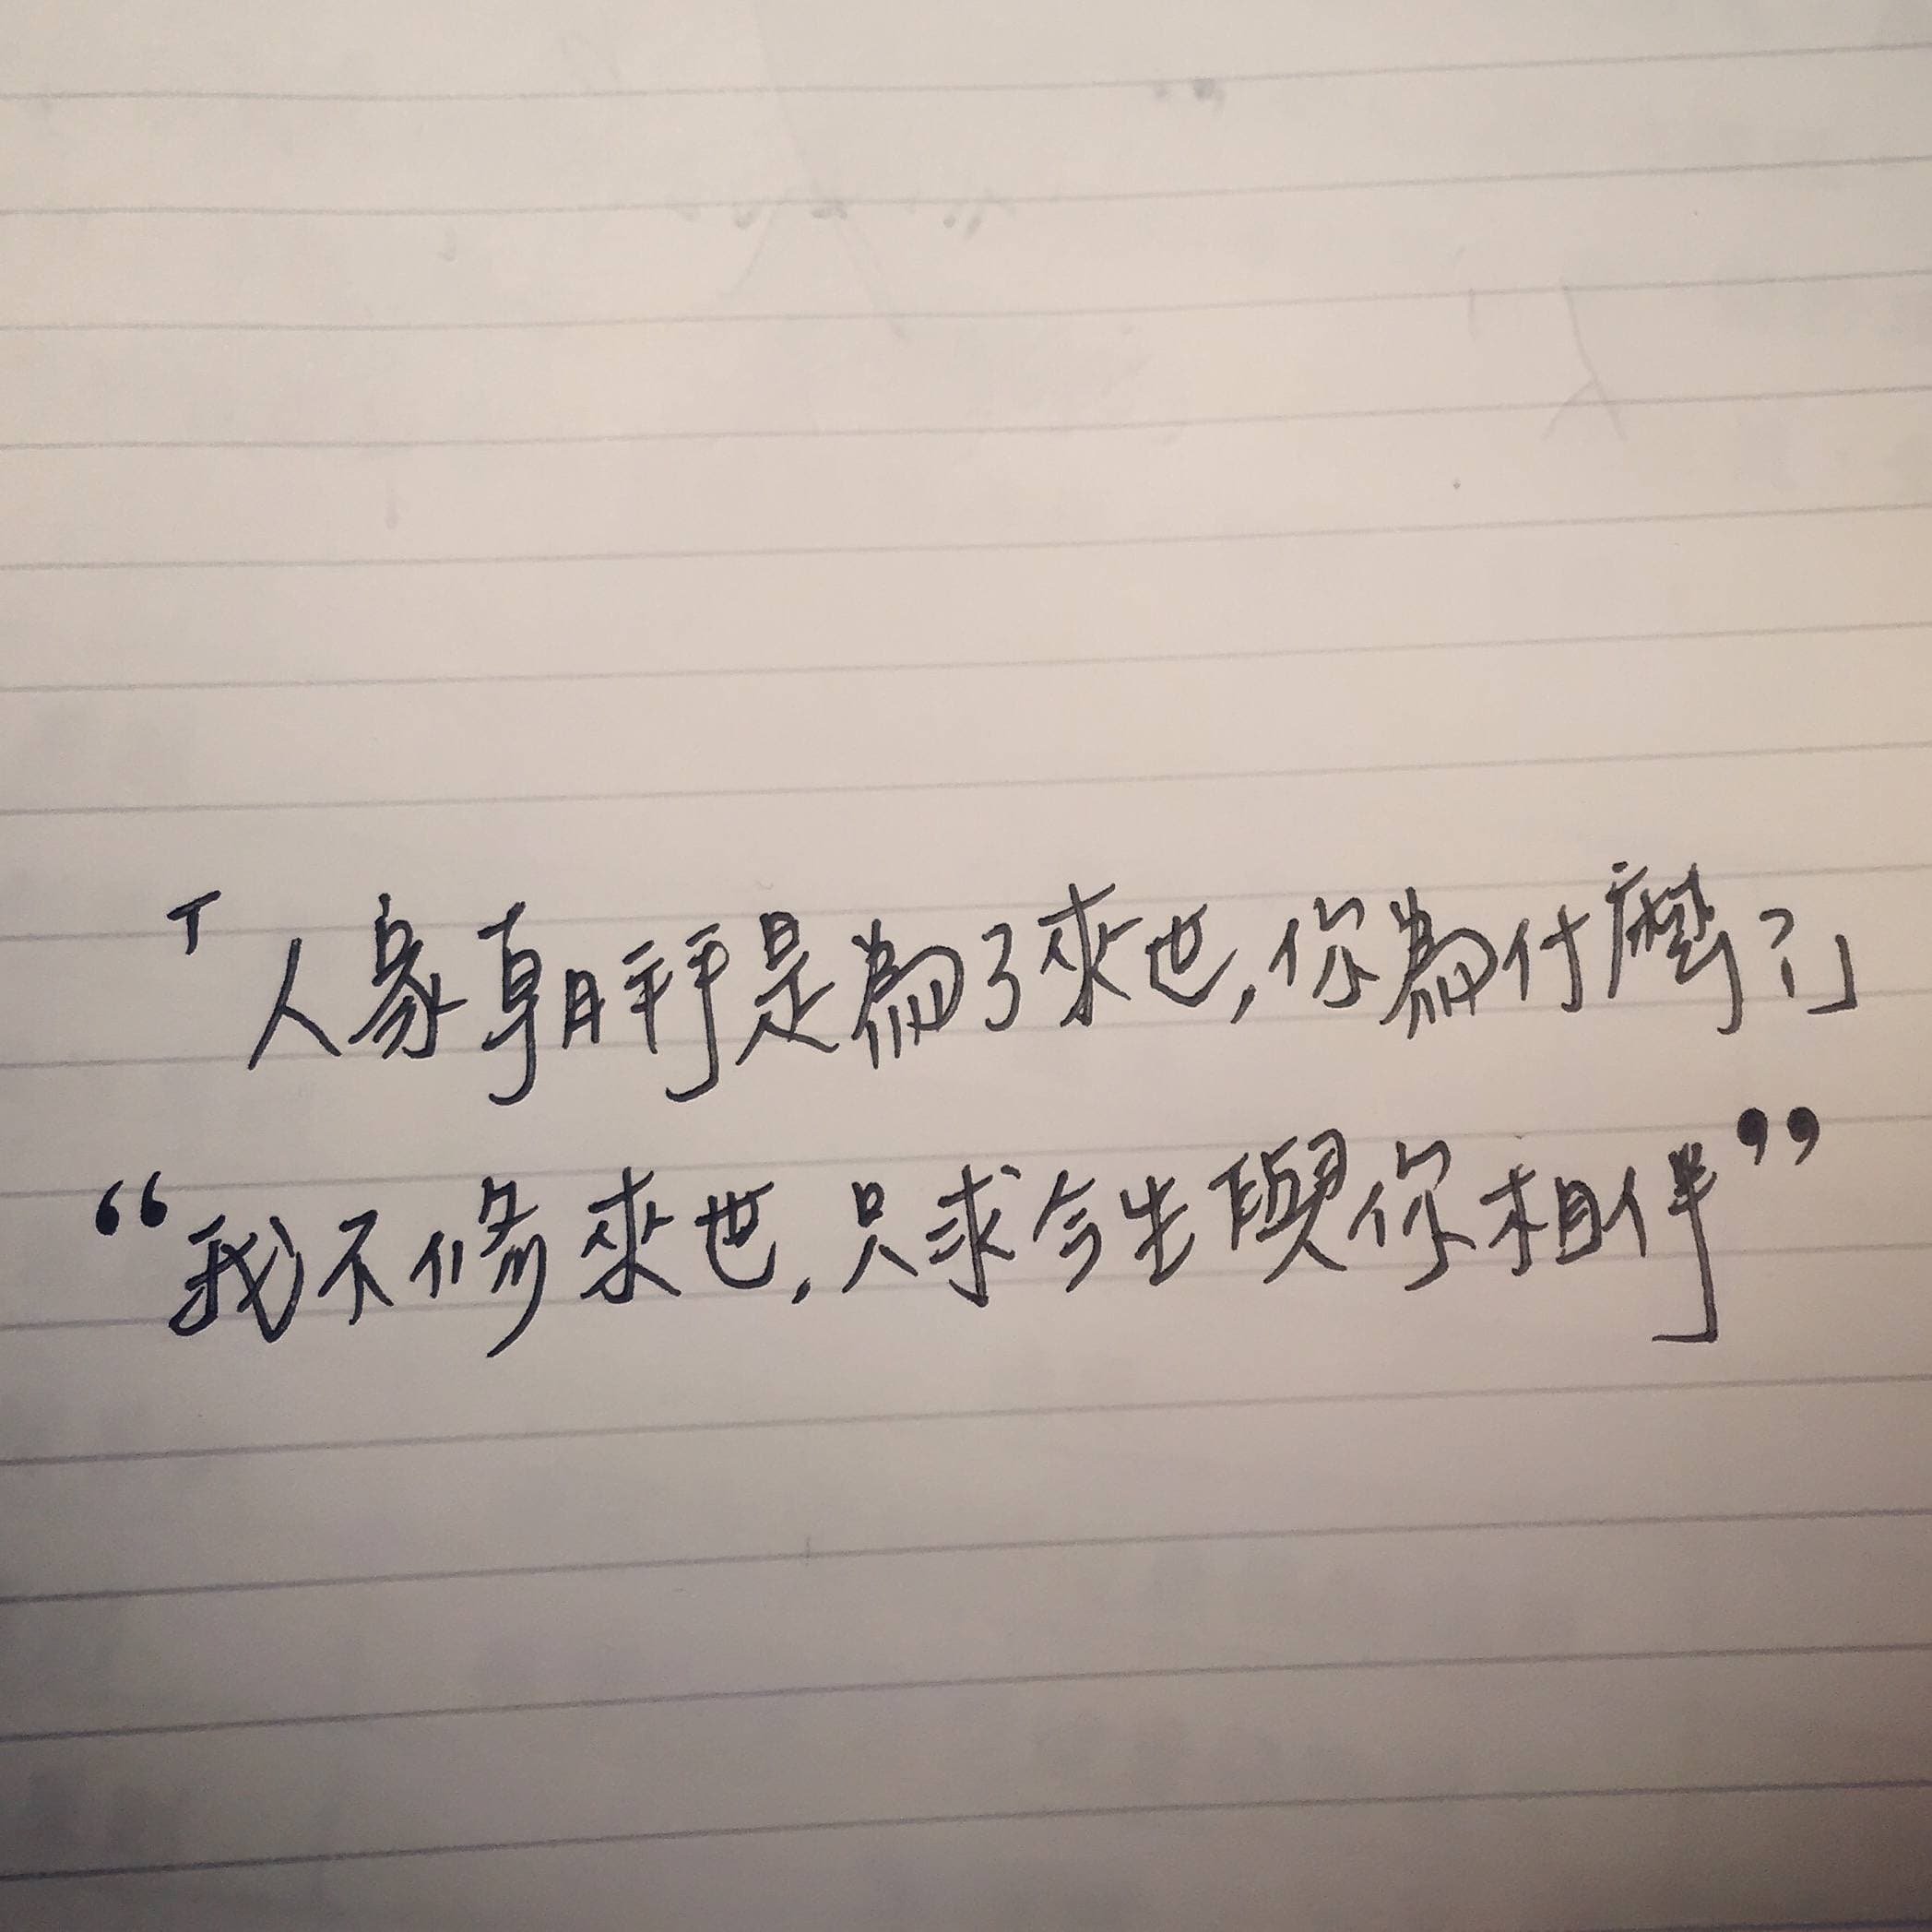 「人家朝拜是為了來世,你為什麼?」
“我不修來世,只求今生與你相伴”